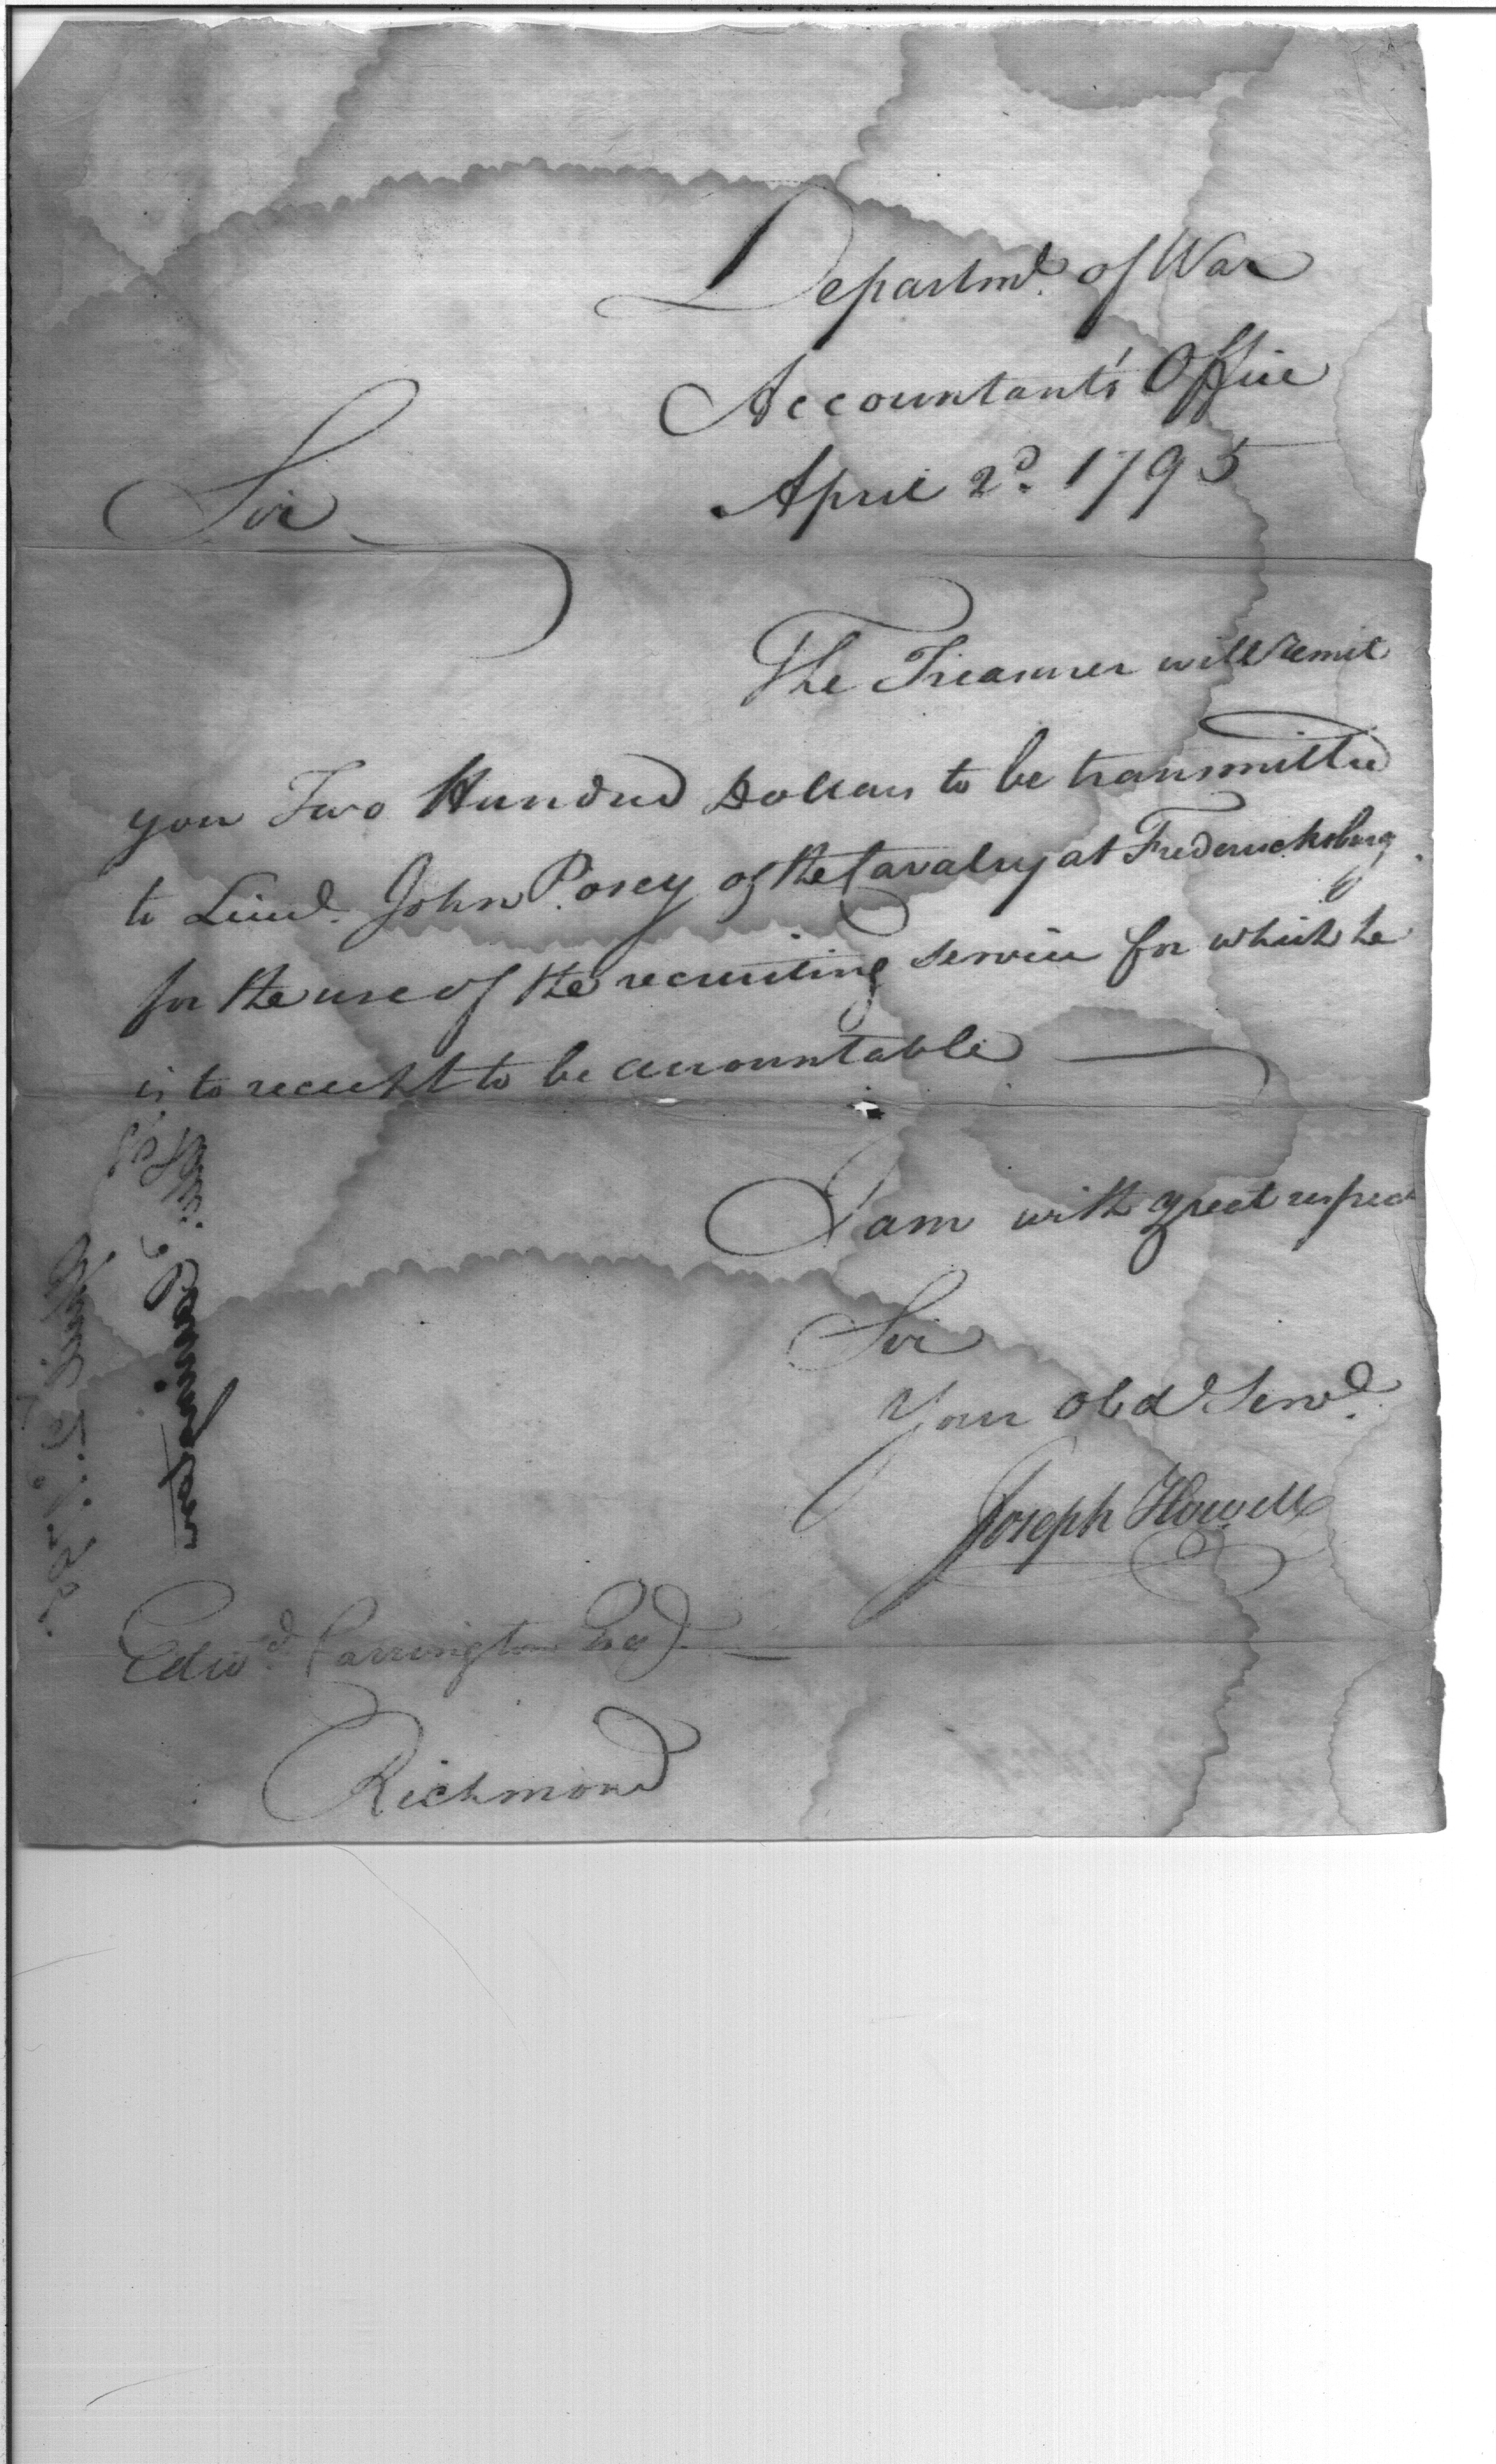 Departmt. of War
Accountant's Office
April 2d. 1795
Sir
The Treasurer will remit
you Two Hundred Dollars to be transmitted
to Lieut. John Posey of the Cavalry at Fredericksburg
for the use of the recruiting service for which he
is to receipt to be accountable
I am with great respect
Sir
Your Obd Servt.
Joseph Howell
Edwd. Carrington Esq.
Richmond